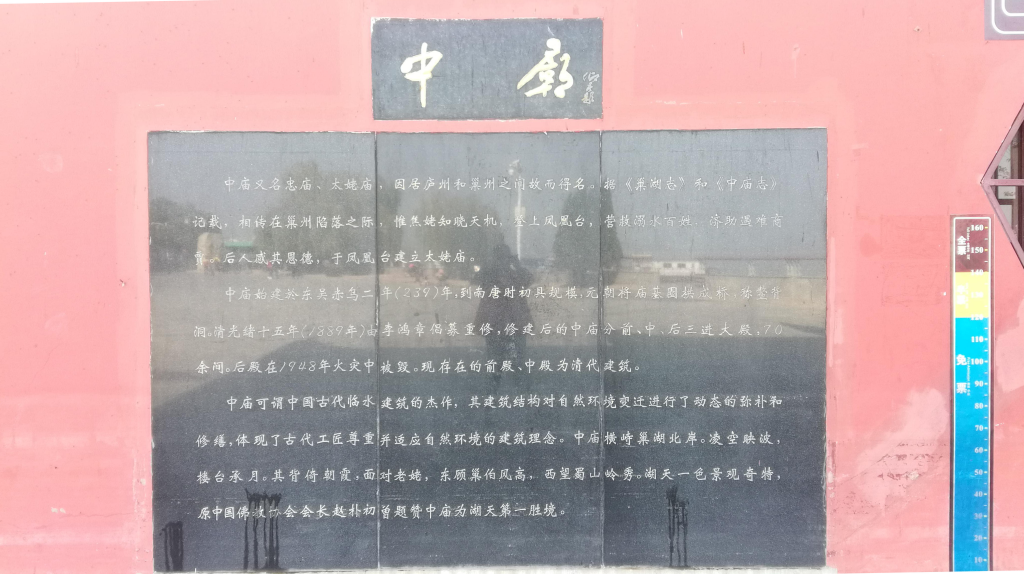 中廟
中庙又名忠庙、太姥庙，因居庐州和巢州之间故而得名。据《巢湖志》和《中庙志》
记载，相传在巢州陷落之际，惟焦姥知晓天机，登上凤凰台，营救溺水百姓，济助遇难商
。后人感其恩德，于凤凰台建立太姥庙。
中庙始建于东吴赤乌二年(239)年，到南唐时初具规模，元朝将庙基围拱成桥，
洞。清光绪十五年(1889年)由李鸿章倡募重修，修建后的中庙分前、中、后三进大殿，70
余间。后殿在1948年火灾中被毁。现存在的前殿、中殿为清代建筑。
中庙可谓中国古代临水建筑的杰作，其建筑结构对自然环境变迁进行了动态的弥补和
修缮，体现了古代工匠尊重并适应自然环境的建筑理念。中庙横峙巢湖北岸。凌空映波，
楼台承月。其背倚朝霞，面对老姥，东顾巢伯风高，西望蜀山岭秀。湖天一色景观奇特，
原中国佛教协会会长赵朴初曾题赞中庙为湖天第一胜境。
全票
免票
160
150
140
110
100
90
80
70
60
50
40
30
20
10